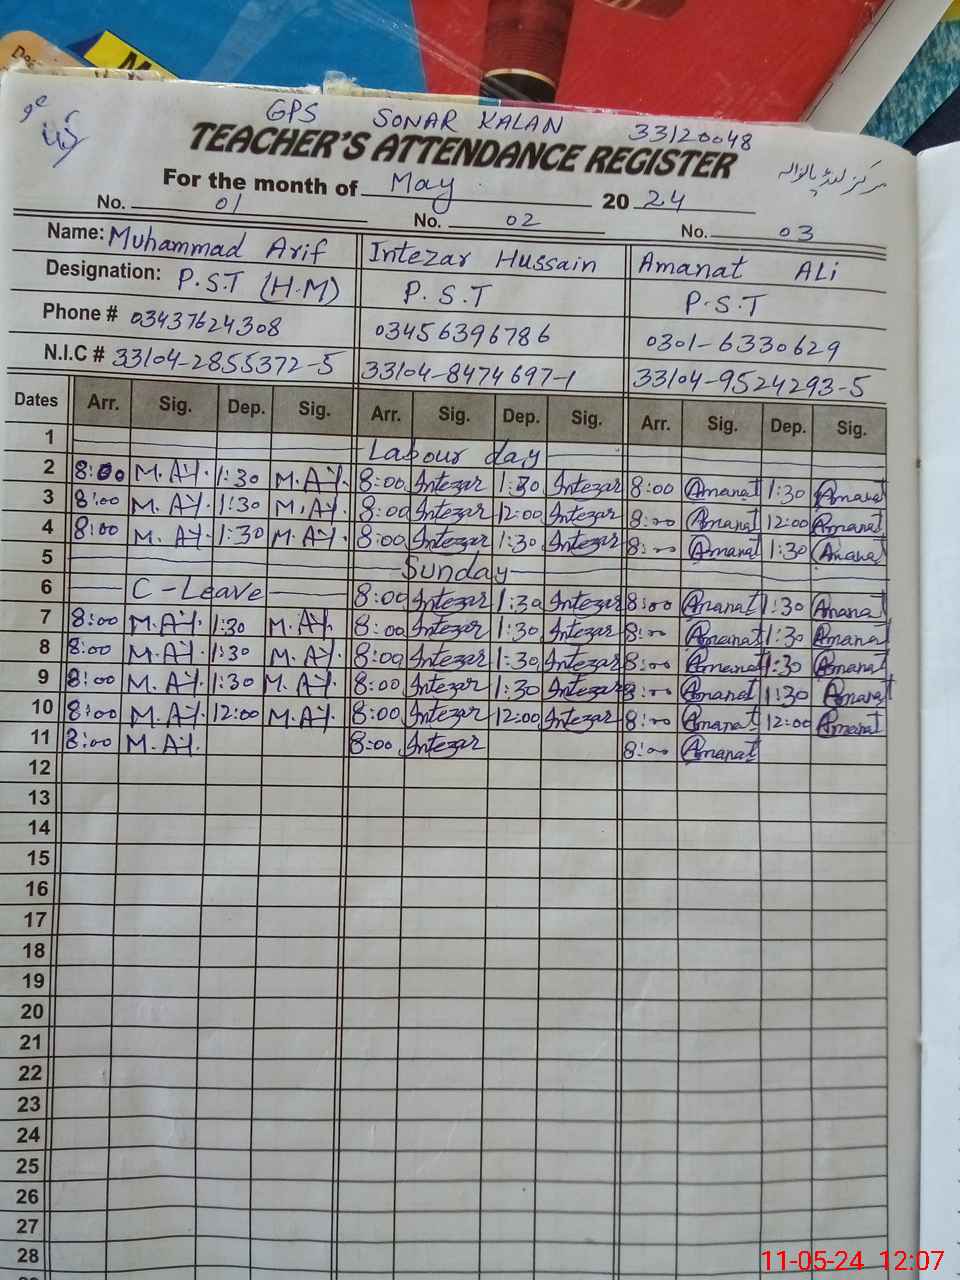 GPS SONAR KALAN 33120048
TEACHER'S ATTENDANCE REGISTER
For the month of May 2024
No. 01 No. 02 No. 03
Name: Muhammad Arif Intezar Hussain Amanat ALi
Designation: P.S.T (H.M) P.S.T P.S.T
Phone # 03437624308 03456396786 0301-6330629
N.I.C # 33104-2855372-5 33104-8474697-1 33104-9524293-5
Dates Arr. Sig. Dep. Sig. Arr. Sig. Dep. Sig. Arr. Sig. Dep. Sig.
1 Labour day
2 8:00 M.Arif. 1:30 M.Arif. 8:00 Intezar 1:30 Intezar 8:00 Amanat 1:30 Amanat
3 8:00 M.Arif. 1:30 M.Arif. 8:00 Intezar 12:00 Intezar 8:00 Amanat 12:00 Amanat
4 8:00 M.Arif. 1:30 M.Arif. 8:00 Intezar 1:30 Intezar 8:00 Amanat 1:30 Amanat
5 Sunday
6 C-Leave 8:00 Intezar 1:30 Intezar 8:00 Amanat 1:30 Amanat
7 8:00 M.Arif. 1:30 M.Arif. 8:00 Intezar 1:30 Intezar 8:00 Amanat 1:30 Amanat
8 8:00 M.Arif. 1:30 M.Arif. 8:00 Intezar 1:30 Intezar 8:00 Amanat 1:30 Amanat
9 8:00 M.Arif. 1:30 M.Arif. 8:00 Intezar 1:30 Intezar 8:00 Amanat 1:30 Amanat
10 8:00 M.Arif. 12:00 M.Arif. 8:00 Intezar 12:00 Intezar 8:00 Amanat 12:00 Amanat
11 8:00 M.Arif. 8:00 Intezar 8:00 Amanat
12
13
14
15
16
17
18
19
20
21
22
23
24
25
26
27
28
11-05-24 12:07